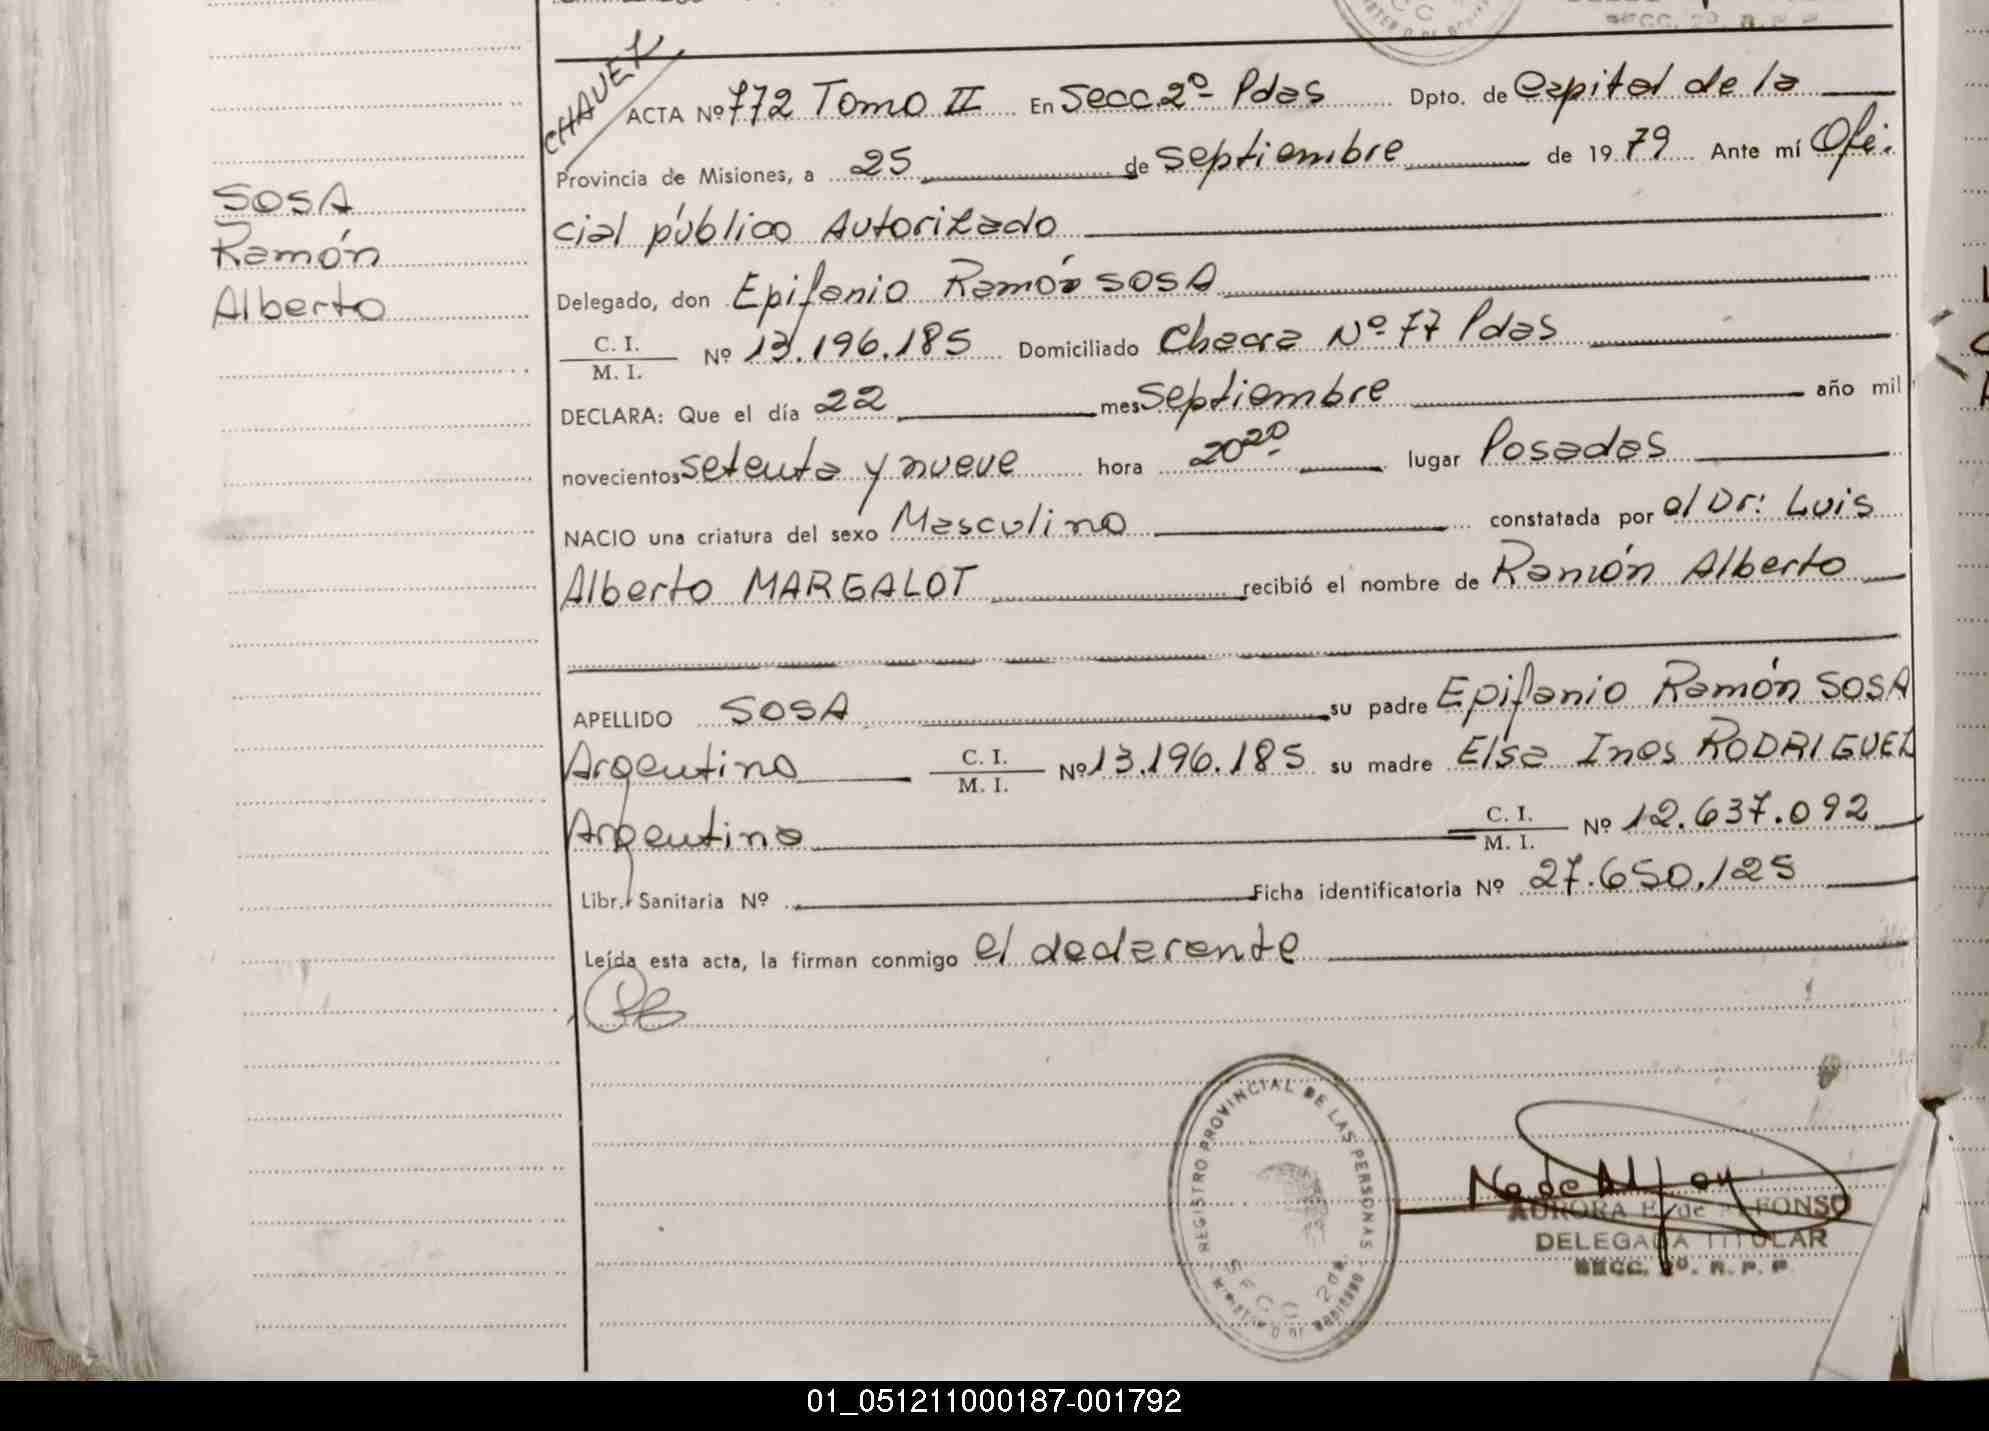 SECC. 2º. R. P. P.
CHAVEZ
ACTA Nº 772 Tomo II En Secc. 2º- Pdas Dpto. de Capital de la
Provincia de Misiones, a 25 de Septiembre de 1979 Ante mí Ofi-
cial público Autorizado
SOSA
Ramón
Alberto
Delegado, don Epifanio Ramón SOSA
C. I.
M. I.
Nº 13.196.185 Domiciliado Chacra Nº 77 Pdas
DECLARA: Que el día 22 mes Septiembre año mil
novecientos setenta y nueve hora 20 20 lugar Posadas
NACIO una criatura del sexo Masculino constatada por el Dr: Luis
Alberto MARGALOT recibió el nombre de Ramón Alberto
APELLIDO SOSA su padre Epifanio Ramón SOSA
Argentino C. I.
M. I. Nº 13.196.185 su madre Elsa Ines RODRIGUEZ
Argentina C. I.
M. I. Nº 12.637.092
Libr. Sanitaria Nº Ficha identificatoria Nº 27.650.125
Leída esta acta, la firman conmigo el declarante
REGISTRO PROVINCIAL DE LAS PERSONAS
SECC. 2da.
AURORA de FONSO
DELEGADA TITULAR
SECC. 2º. R. P. P.
01_051211000187-001792